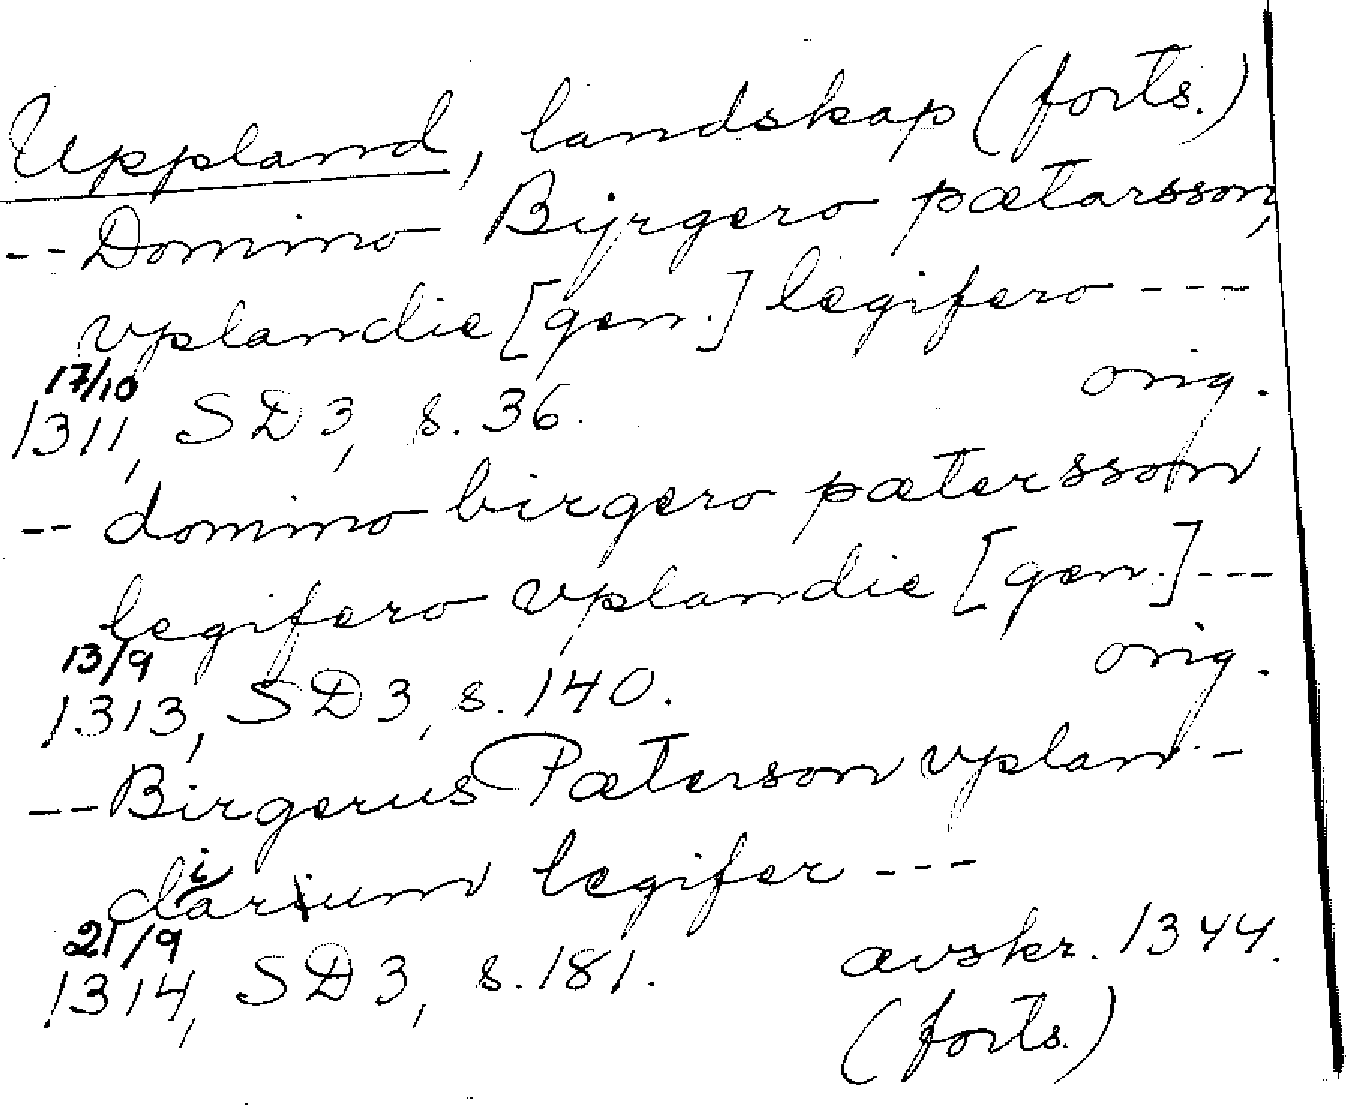 Uppland, landskap (forts.)
-- Domino Bÿrgero pætarsson,
vplandie [gen.] legifero ---
17/10
1311, SD 3, s. 36. orig.
-- domino birgero pætersson
legifero vplandie [gen.] ---
13/9
1313, SD 3, s. 140. orig.
-- Birgerus Pæterson vplan-
diarum legifer ---
21/9
1314, SD 3, s. 181. avskr. 1344.
(forts.)